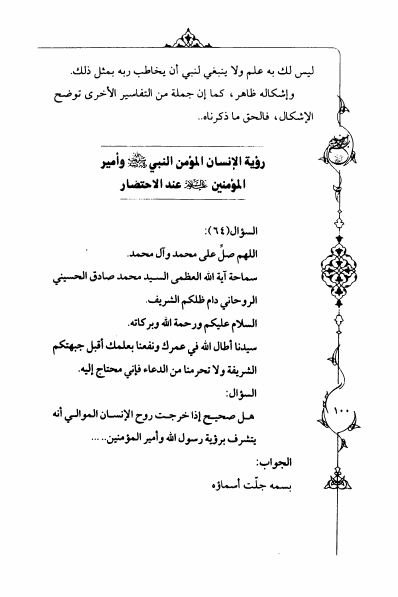 ليس لك به علم ولا ينبغي لنبي أن يخاطب ربه بمثل ذلك.
وإشكاله ظاهر، كما إن جملة من التفاسير الأخرى توضح
الإشكال، فالحق ما ذكرناه..
رؤية الإنسان المؤمن النبي ﷺ وأمير
المؤمنين عند الاحتضار
السؤال(٦٤):
اللهم صلِّ على محمد وآل محمد.
سماحة آية الله العظمى السيد محمد صادق الحسيني
الروحاني دام ظلكم الشريف.
السلام عليكم ورحمة الله وبركاته.
سيدنا أطال الله في عمرك ونفعنا بعلمك أقبل جبهتكم
الشريفة ولا تحرمنا من الدعاء فإني محتاج إليه.
السؤال:
هل صحيح إذا خرجت روح الإنسان الموالي أنه
يتشرف برؤية رسول الله وأمير المؤمنين.. ...
الجواب:
بسمه جلّت أسماؤه
١٠٠